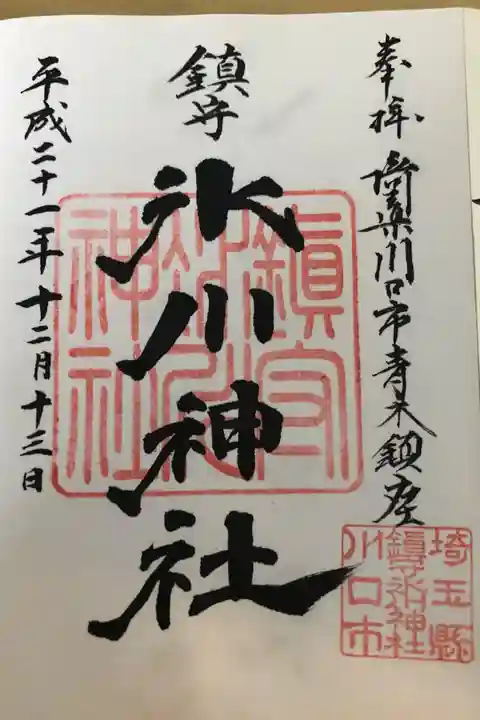 奉拝 埼玉県川口市青木鎮座
鎮守
氷川神社
平成二十一年十二月十三日
鎮守
氷川
神社
埼玉縣
鎮守氷川神社
川口市